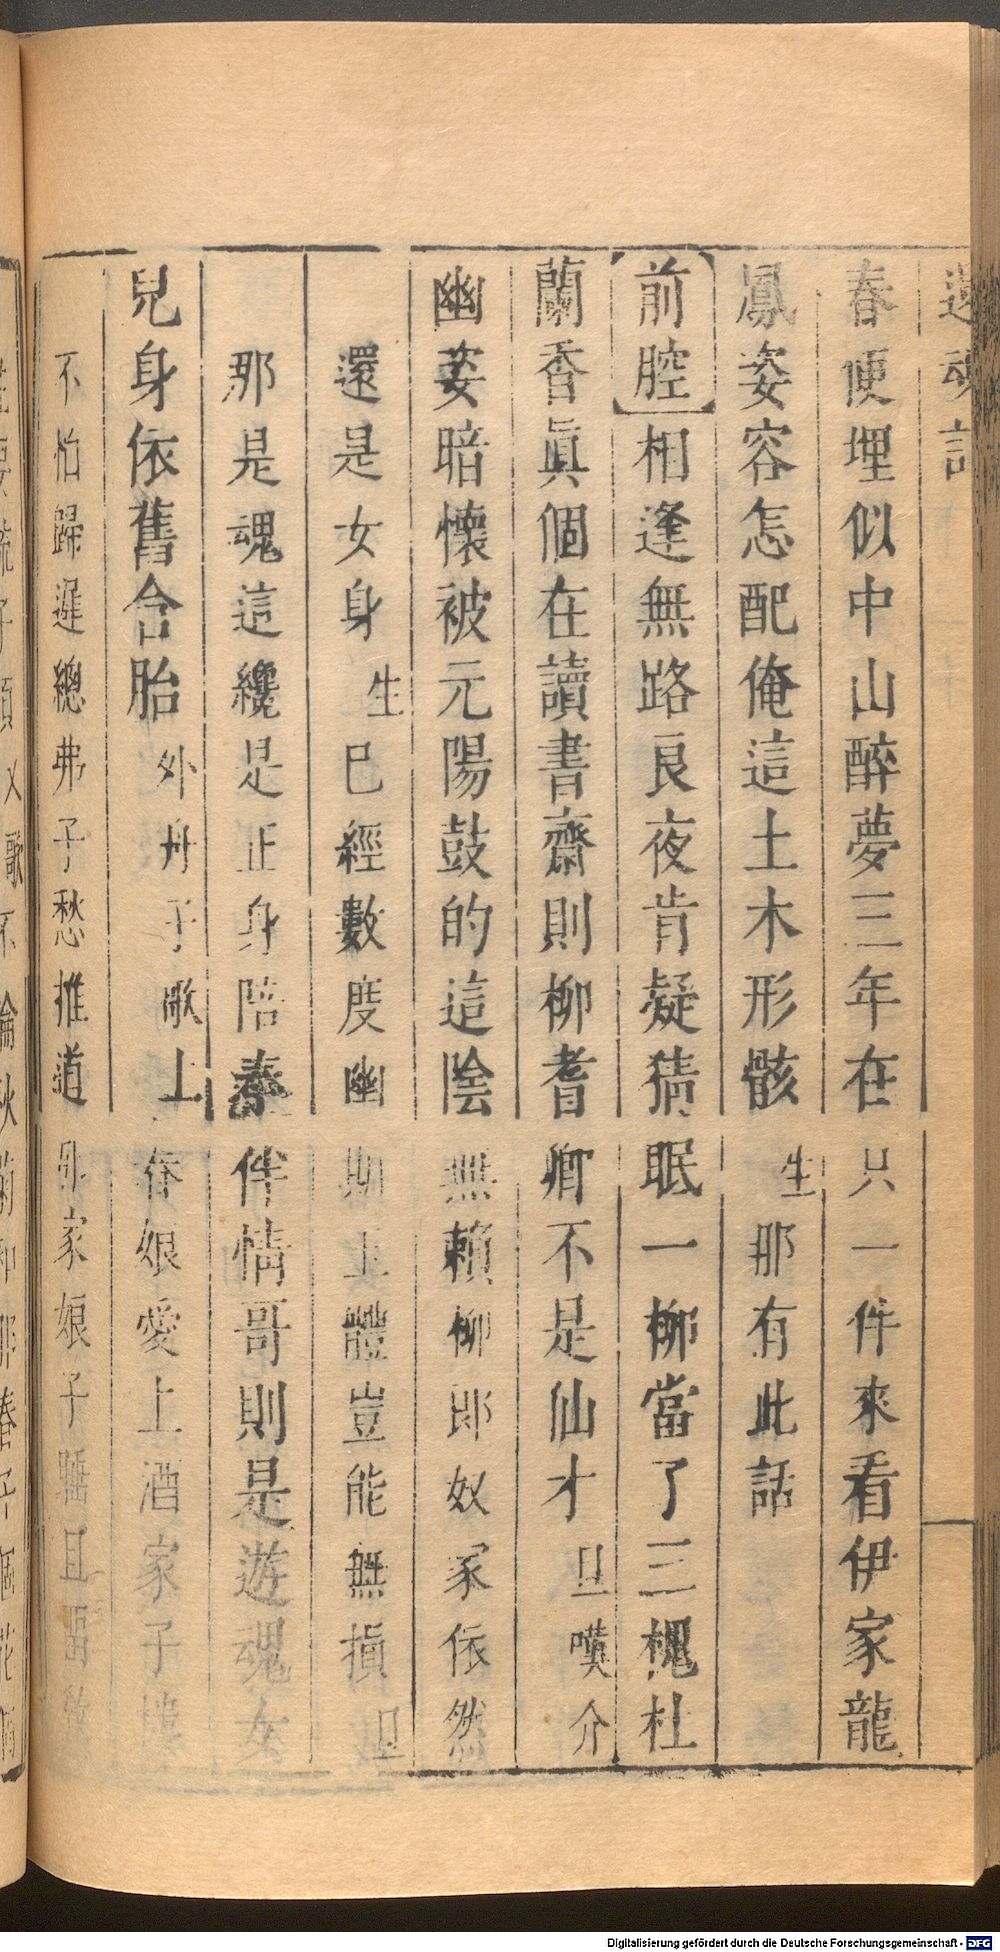 還魂記
春便埋似中山醉夢三年在只一件來看伊家龍
鳳姿容怎配俺這土木形骸生那有此話
前腔相逢無路良夜肯疑猜眠一柳當了三槐杜
蘭香眞個在讀書齋則柳耆卿不是仙才旦嘆介
幽姿暗懷被元陽鼓的這陰無賴柳郎奴家依然
還是女身生巳經數度幽期玉體豈能無損旦
那是魂這纔是正身陪奉伴情哥則是遊魂女
兒身依舊含胎外舟子歌上春娘愛上酒家子樓
不怕歸遲總弗子愁推道那家娘子睡且留教
Digitalisierung gefördert durch die Deutsche Forschungsgemeinschaft - DFG